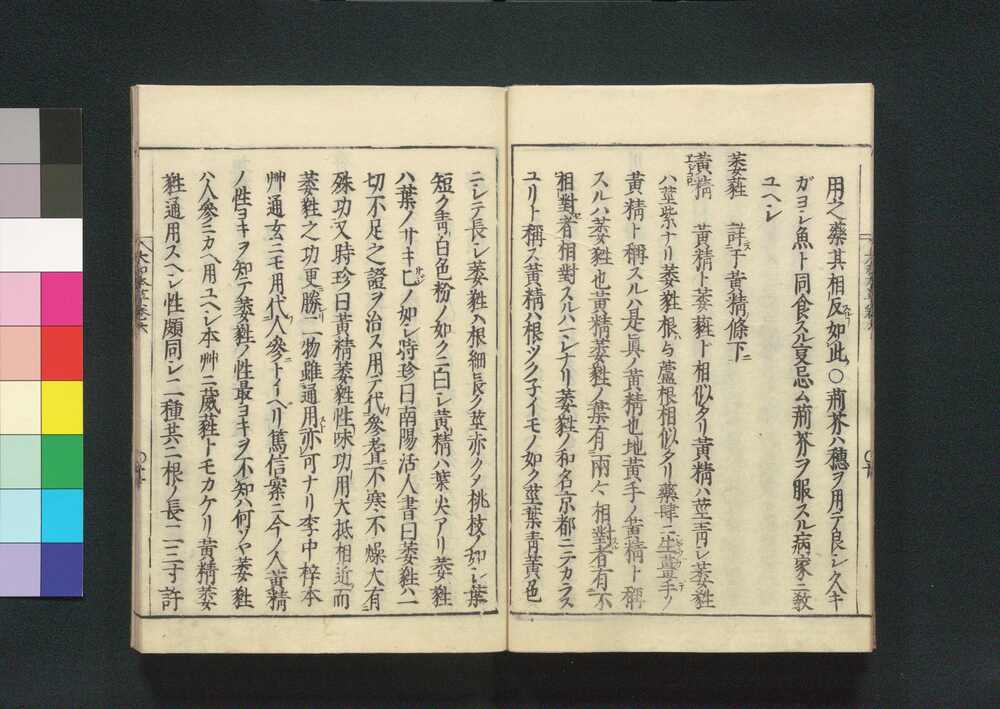 用之藥其相反如此○荊芥ハ穂ヲ用テ良シ久キ
ガヨシ魚ト同食スル叓忌ム荊芥ヲ服スル病家ニ教
ユヘシ
萎蕤 詳于黄精條下ニ
黄精 黄精ト萎蕤ト相似タリ黄精ハ莖青シ萎蕤
ハ莖紫ナリ萎蕤根ハ与蘆根相似タリ藥肆ニ生薑手ノ
黄精ト稱スルハ是眞ノ黄精也地黄手ノ黄精ト稱
スルハ萎蕤也黄精萎蕤ノ葉有兩々相對者有不
相對者相對スルハマレナリ萎蕤ノ和名京都ニテカラス
ユリト稱ス黄精ハ根ツク子イモノ如ク莖葉青黄色
ニシテ長シ萎蕤ハ根細長ク莖赤クメ桃枝ノ如シ葉
短ク青白色粉ノ如クニ白シ黄精ハ葉尖アリ萎蕤
ハ葉ノサキ匕ノ如シ時珍曰南陽活人書曰萎蕤ハ一
切不足之證ヲ治ス用テ代參耆不寒不燥大有
殊功又時珍曰黄精萎蕤性味功用大抵相近而
萎蕤之功更勝二物雖通用亦可ナリ李中梓本
艸通玄ニモ用代人參トイヘリ篤信案ニ今ノ人黄精
ノ性ヨキヲ知テ萎蕤ノ性最ヨキヲ不知ハ何ソヤ萎蕤
ハ人參ニカヘ用ユヘシ本艸ニ葳蕤トモカケリ黄精萎
蕤通用スヘシ性頗同シ二種共ニ根ノ長二三寸許